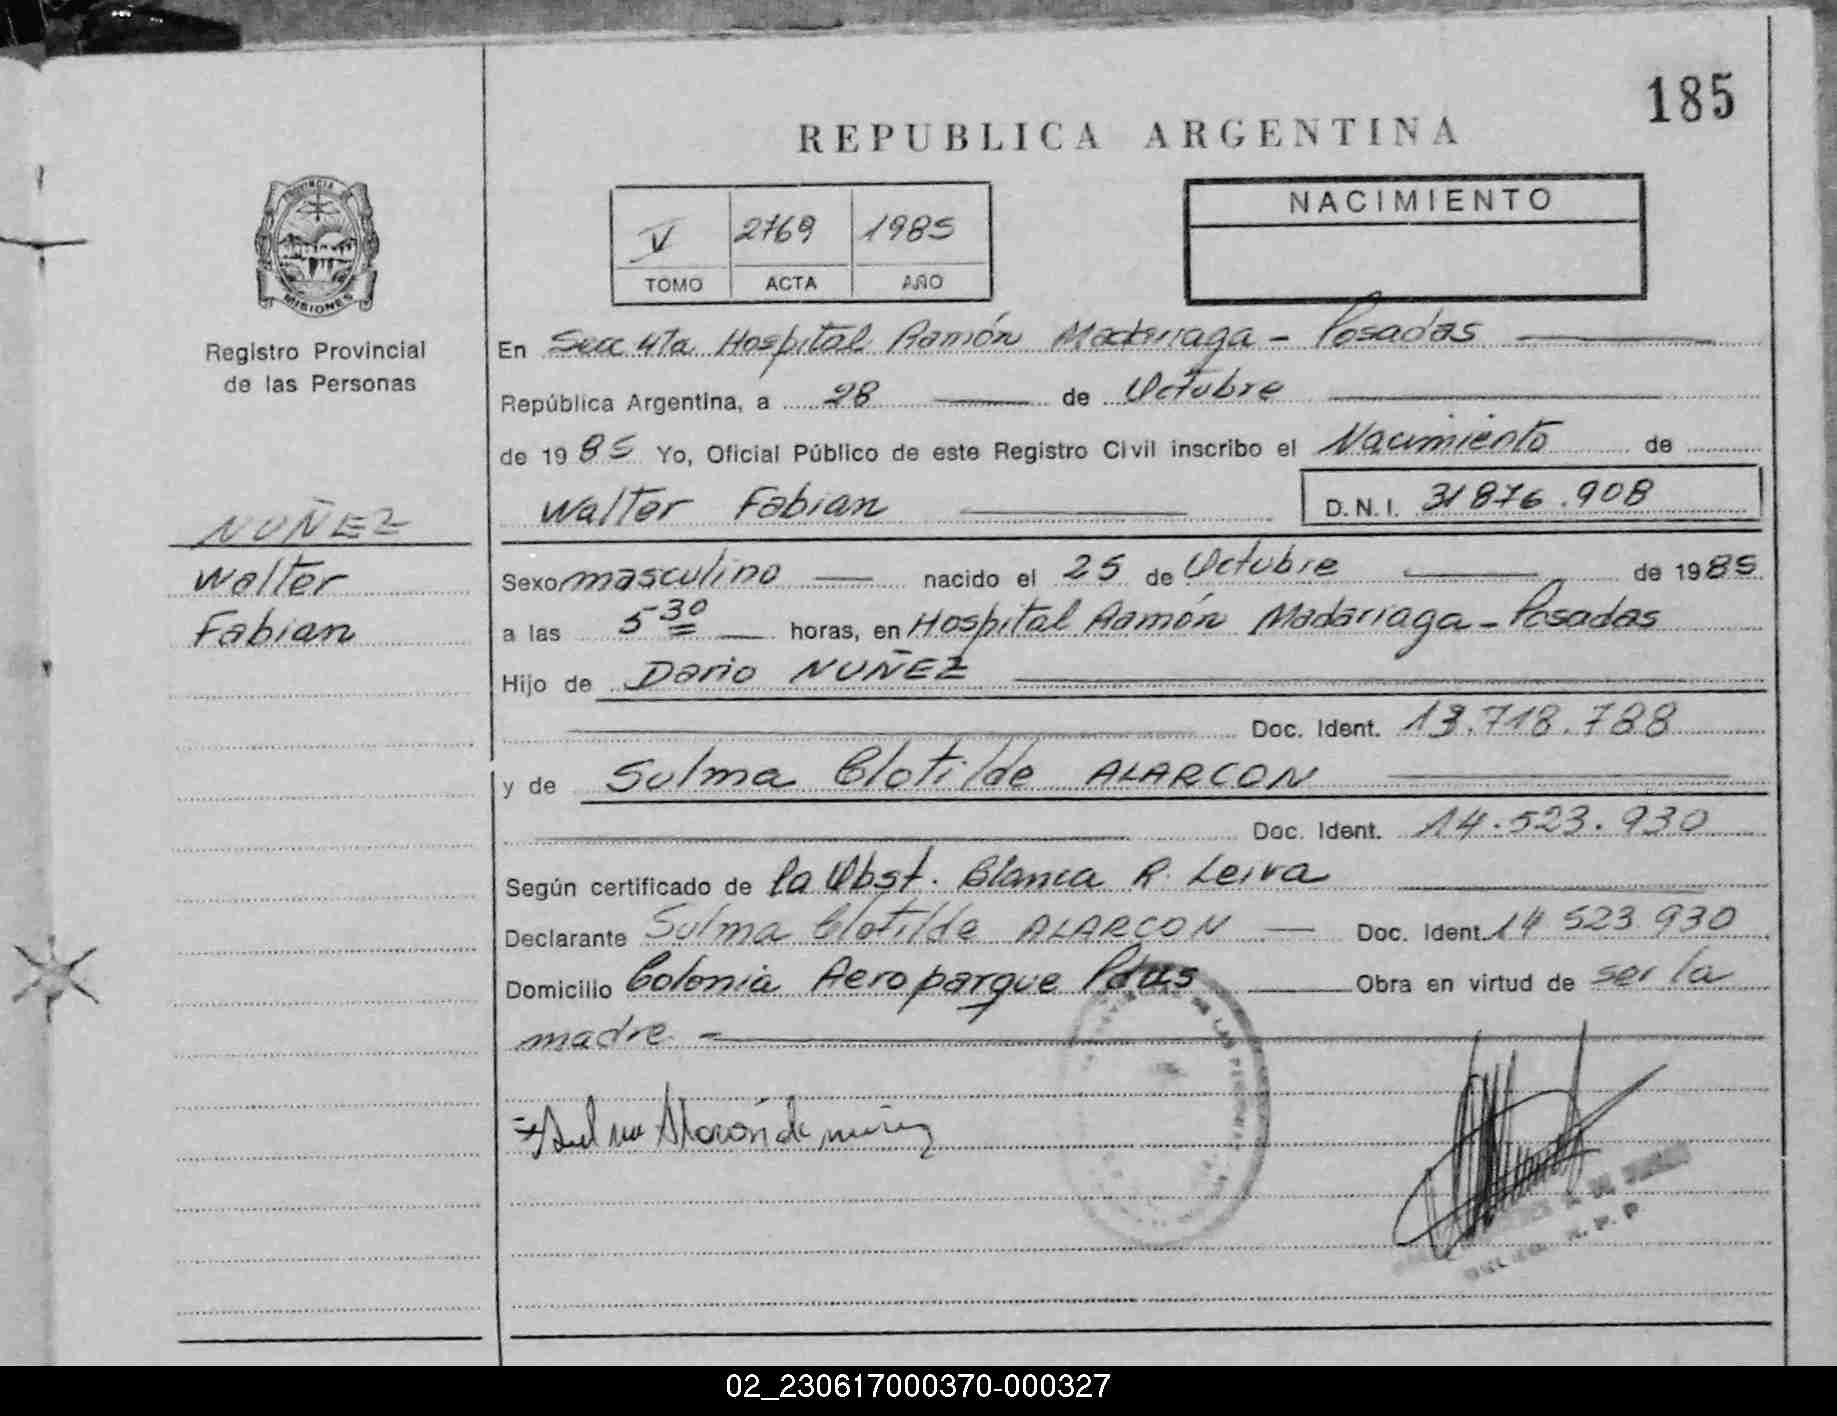 185
REPUBLICA ARGENTINA
PROVINCIA DE
MISIONES
Registro Provincial
de las Personas
V 2769 1985
TOMO ACTA AÑO
NACIMIENTO
En Secc 4ta Hospital Ramón Madariaga - Posadas
República Argentina, a 28 de Octubre
de 1985 Yo, Oficial Público de este Registro Civil inscribo el Nacimiento de
Walter Fabian D.N.I. 31876.908
NUÑEZ
Walter
Fabian
Sexo masculino nacido el 25 de Octubre de 1985
a las 5 30 horas, en Hospital Ramón Madariaga - Posadas
Hijo de Dario NUÑEZ
Doc. Ident. 13.718.788
y de Sulma Clotilde ALARCON
Doc. Ident. 14.523.930
Según certificado de la Obst. Blanca R. Leiva
Declarante Sulma Clotilde ALARCON Doc. Ident. 14 523.930
Domicilio Colonia Aeroparque Pdas Obra en virtud de ser la
madre
Sulma Alarcón de nuñez
DE LAS PERSONAS
R. P. P.
02_230617000370-000327